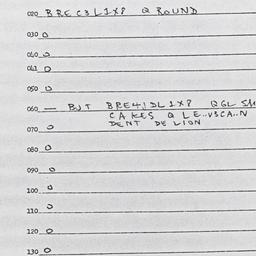 020 BREC3L1X8 Q ROUND
030 O
040 O
041 O
050 O
060 — BUT BRE4JDL1X8 QGL
CAKES Q LE..VSCA..N
DENT DE LION
070 O
080 O
090 O
100 O
110 O
120 O
130 O